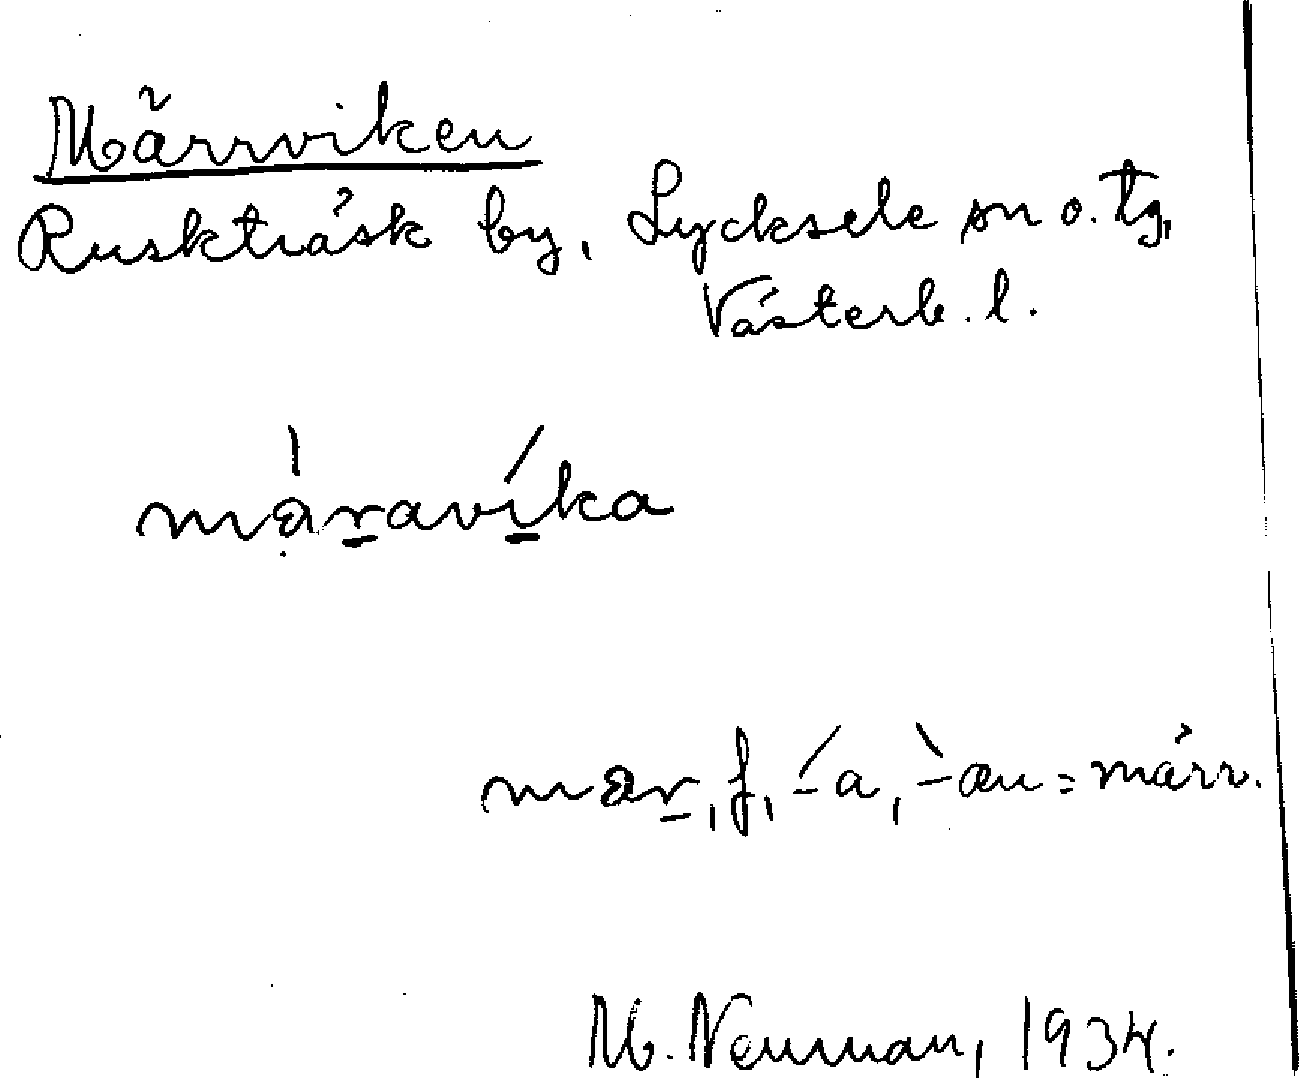 Märrviken
Ruskträsk by, Lycksele sn o. tg,
Västerb. l.
màravíka
mar, f, ́-a, ̀-æn = märr.
M. Neuman, 1934.